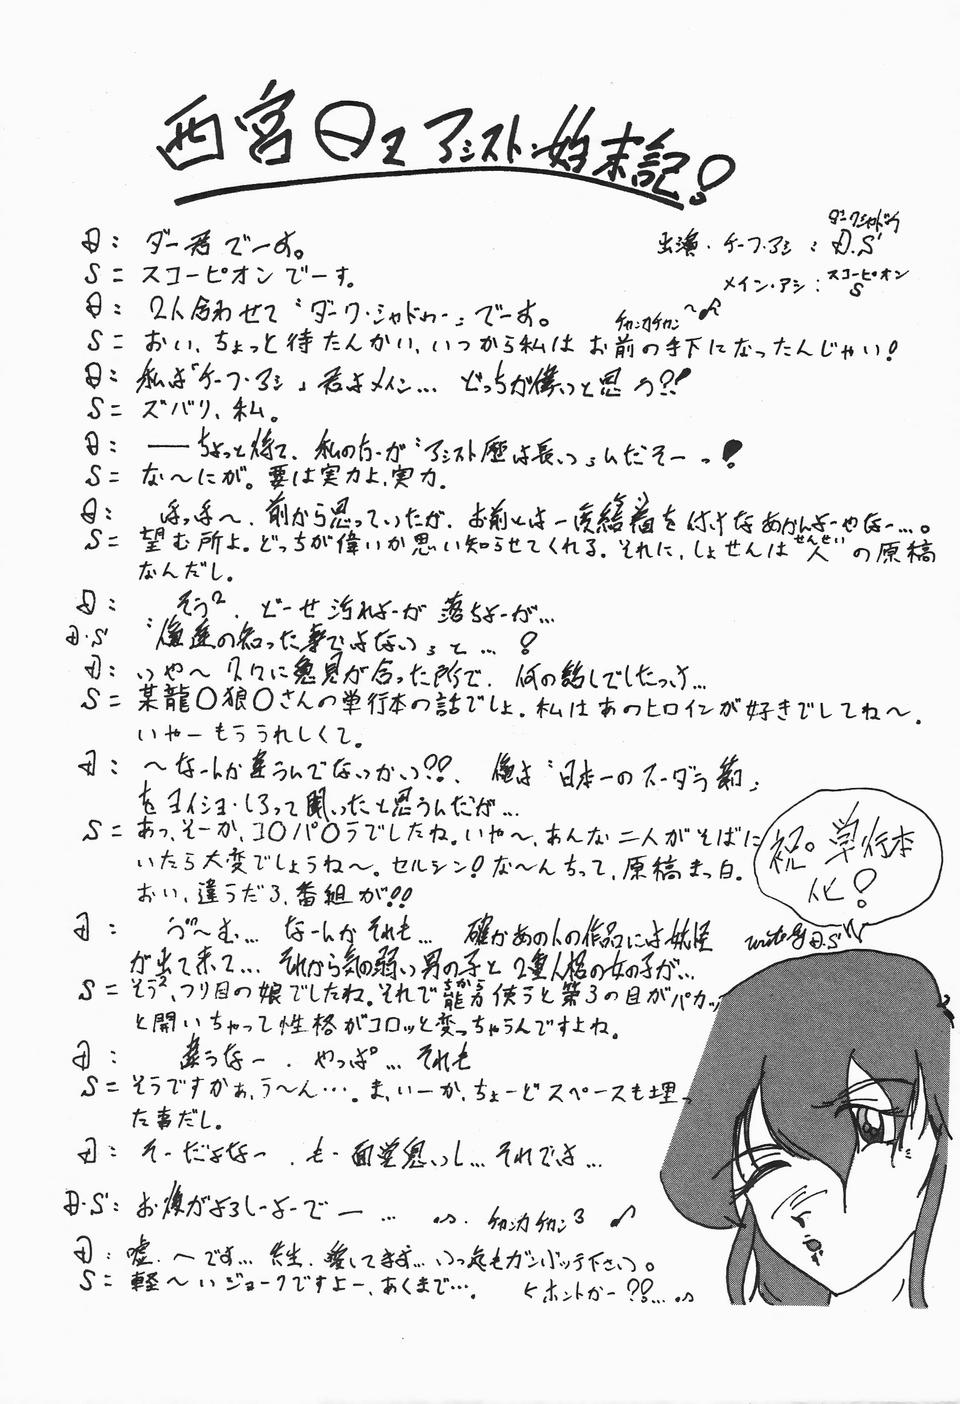 西宮日エアシスト始末記!
ダークシャドウ
出演・チーフ・アシ:D.S
スコーピオン
メイン・アシ:S
D: ダー君でーす。
S= スコーピオンでーす。
D: 2人合わせて〝ダーク・シャドゥー〟でーす。
チャンカチャン〜♪
S= おい、ちょっと待たんかい、いつから私はお前の手下になったんじゃい!
D: 私は「チーフ・アシ」君はメイン… どっちが偉いっと思う?!
S= ズバリ、私。
D: ──ちょっと待て、私の方が〝アシスト歴は長いっ〟んだぞーっ!
S= な〜にが。要は実力よ、実力。
D: ほっほ〜、前から思っていたが、お前とは一度結着を付けなあかんよーやなー…。
S= 望む所よ。どっちが偉いか思い知らせてくれる。それに、しょせんは人(せんせい)の原稿
なんだし。
D: そう²、どーせ汚れよーが落ちよーが…
D・S 〝俺達の知った事ではない〟と…!
D: いや〜 久々に意見が合った所で、何の話しでしたっけ…
S= 某龍〇狼〇さんの単行本の話でしょ。私はあのヒロインが好きでしてね〜。
いやーもううれしくて。
D: 〜なーんか違うんでないかい??、俺は〝日本一のスーダラ節〟
をヨイショ・しろって聞いったと思うんだが…
S= あっ、そーか、コ〇パ〇ラでしたね。いや〜、あんな二人がそばに
いたら大変でしょうね〜。セルシン!な〜んちって、原稿まっ白。
おい、違うだろ、番組が!!
祝。単行本
化!
write by D.S
D: う〜む… なーんかそれも… 確かあの人の作品には妖怪
が出て来て… それから気の弱い男の子と2重人格の女の子が…
S= そう²、つり目の娘でしたね。それで能力(ちから)使うと第3の目がパカッ
と開いちゃって性格がコロッと変っちゃうんですよね。
D: 違うなー、やっぱ… それも
S= そうですかぁ、う〜ん…。ま、いーか、ちょーどスペースも埋っ
た事だし。
D: そーだよなー、も一面堂思いし… それでは…
D・S: お後がよろしーよーでー… チャンカチャン3 ♪
D: 嘘、〜です… 先生、愛してます… いつ迄もガンバッテ下さい。
S= 軽〜いジョークですよー、あくまで…。 ←ホントかー??…